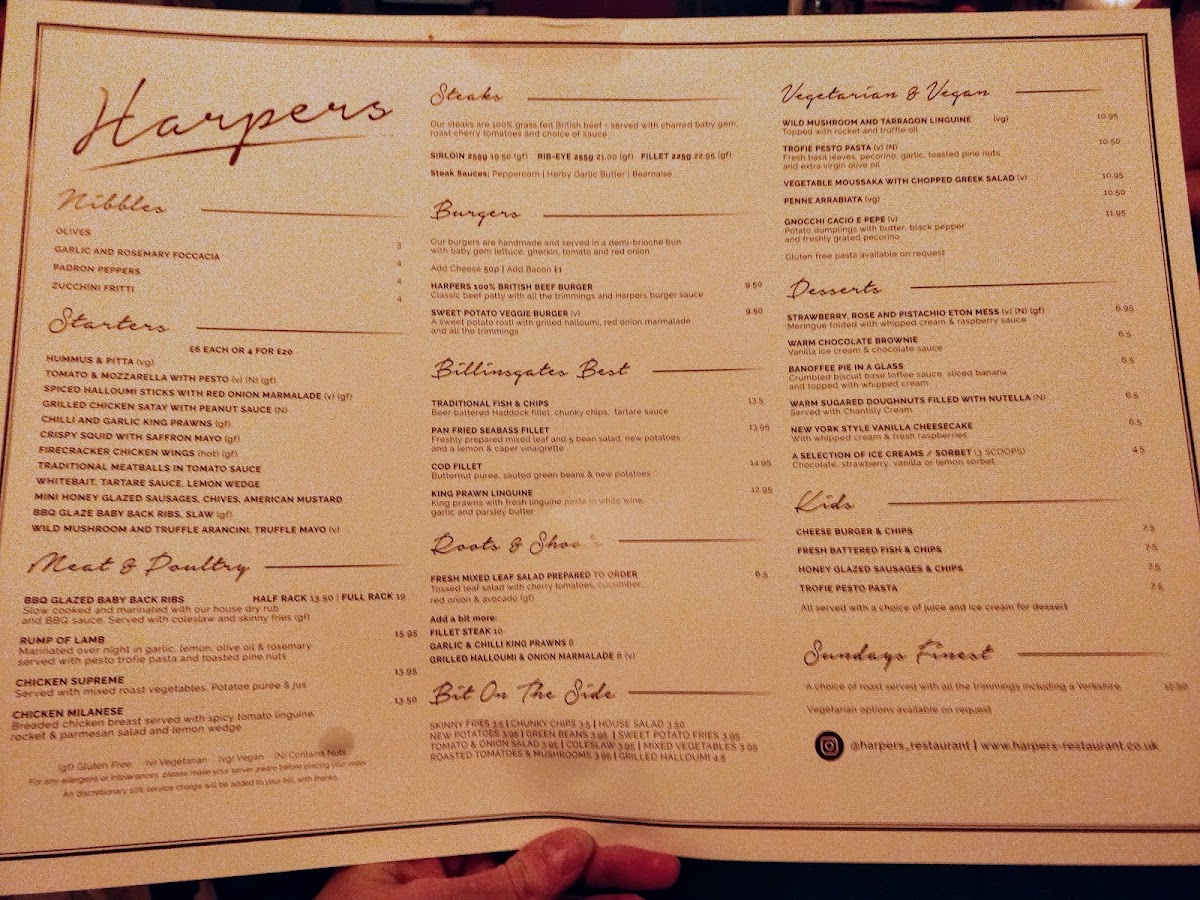 Harpers
Nibbles
OLIVES 3
GARLIC AND ROSEMARY FOCCACIA 4
PADRON PEPPERS 4
ZUCCHINI FRITTI 4
Starters
£6 EACH OR 4 FOR £20
HUMMUS & PITTA (vg)
TOMATO & MOZZARELLA WITH PESTO (v) (N) (gf)
SPICED HALLOUMI STICKS WITH RED ONION MARMALADE (v) (gf)
GRILLED CHICKEN SATAY WITH PEANUT SAUCE (N)
CHILLI AND GARLIC KING PRAWNS (gf)
CRISPY SQUID WITH SAFFRON MAYO (gf)
FIRECRACKER CHICKEN WINGS (hot) (gf)
TRADITIONAL MEATBALLS IN TOMATO SAUCE
WHITEBAIT, TARTARE SAUCE, LEMON WEDGE
MINI HONEY GLAZED SAUSAGES, CHIVES, AMERICAN MUSTARD
BBQ GLAZE BABY BACK RIBS, SLAW (gf)
WILD MUSHROOM AND TRUFFLE ARANCINI, TRUFFLE MAYO (v)
Meat & Poultry
BBQ GLAZED BABY BACK RIBS HALF RACK 13.50 | FULL RACK 19
Slow cooked and marinated with our house dry rub
and BBQ sauce. Served with coleslaw and skinny fries (gf)
RUMP OF LAMB 15.95
Marinated over night in garlic, lemon, olive oil & rosemary
served with pesto trofie pasta and toasted pine nuts
CHICKEN SUPREME 13.95
Served with mixed roast vegetables. Potatoe purée & jus
CHICKEN MILANESE 13.50
Breaded chicken breast served with spicy tomato linguine,
rocket & parmesan salad and lemon wedge
(gf) Gluten Free (v) Vegetarian (vg) Vegan (N) Contains Nuts
For any allergens or intolerances, please make your server aware before placing your order
An discretionary 10% service charge will be added to your bill, with thanks.
Steaks
Our steaks are 100% grass fed British beef - served with charred baby gem,
roast cherry tomatoes and choice of sauce
SIRLOIN 255g 19.50 (gf) RIB-EYE 255g 21.00 (gf) FILLET 225g 22.95 (gf)
Steak Sauces: Peppercorn | Herby Garlic Butter | Bearnaise
Burgers
Our burgers are handmade and served in a demi-brioche bun
with baby gem lettuce, gherkin, tomato and red onion
Add Cheese 50p | Add Bacon £1
HARPERS 100% BRITISH BEEF BURGER 9.50
Classic beef patty with all the trimmings and Harpers burger sauce
SWEET POTATO VEGGIE BURGER (v) 9.50
A sweet potato rosti with grilled halloumi, red onion marmalade
and all the trimmings
Billinsgates Best
TRADITIONAL FISH & CHIPS 13.5
Beer battered Haddock fillet, chunky chips, tartare sauce
PAN FRIED SEABASS FILLET 13.95
Freshly prepared mixed leaf and 5 bean salad, new potatoes
and a lemon & caper vinaigrette
COD FILLET 14.95
Butternut puree, sauted green beans & new potatoes
KING PRAWN LINGUINE 12.95
King prawns with fresh linguine pasta in white wine,
garlic and parsley butter
Roots & Shoo
FRESH MIXED LEAF SALAD PREPARED TO ORDER 6.5
Tossed leaf salad with cherry tomatoes, cucumber,
red onion & avocado (gf)
Add a bit more:
FILLET STEAK 10
GARLIC & CHILLI KING PRAWNS 6
GRILLED HALLOUMI & ONION MARMALADE 6 (v)
Bit On The Side
SKINNY FRIES 3.5 | CHUNKY CHIPS 3.5 | HOUSE SALAD 3.50
NEW POTATOES 3.95 | GREEN BEANS 3.95 | SWEET POTATO FRIES 3.95
TOMATO & ONION SALAD 3.95 | COLESLAW 3.95 | MIXED VEGETABLES 3.95
ROASTED TOMATOES & MUSHROOMS 3.95 | GRILLED HALLOUMI 4.5
Vegetarian & Vegan
WILD MUSHROOM AND TARRAGON LINGUINE (vg) 10.95
Topped with rocket and truffle oil
TROFIE PESTO PASTA (v) (N) 10.50
Fresh basil leaves, pecorino, garlic, toasted pine nuts
and extra virgin olive oil
VEGETABLE MOUSSAKA WITH CHOPPED GREEK SALAD (v) 10.95
PENNE ARRABIATA (vg) 10.50
GNOCCHI CACIO E PEPE (v) 11.95
Potato dumplings with butter, black pepper
and freshly grated pecorino
Gluten free pasta available on request
Desserts
STRAWBERRY, ROSE AND PISTACHIO ETON MESS (v) (N) (gf) 6.95
Meringue folded with whipped cream & raspberry sauce
WARM CHOCOLATE BROWNIE 6.5
Vanilla ice cream & chocolate sauce
BANOFFEE PIE IN A GLASS 6.5
Crumbled biscuit base toffee sauce, sliced banana
and topped with whipped cream
WARM SUGARED DOUGHNUTS FILLED WITH NUTELLA (N) 6.5
Served with Chantilly Cream
NEW YORK STYLE VANILLA CHEESECAKE 6.5
With whipped cream & fresh raspberries
A SELECTION OF ICE CREAMS / SORBET (3 SCOOPS) 4.5
Chocolate, strawberry, vanilla or lemon sorbet
Kids
CHEESE BURGER & CHIPS 7.5
FRESH BATTERED FISH & CHIPS 7.5
HONEY GLAZED SAUSAGES & CHIPS 7.5
TROFIE PESTO PASTA 7.5
All served with a choice of juice and ice cream for dessert
Sundays Finest
A choice of roast served with all the trimmings including a Yorkshire
Vegetarian options available on request
@harpers_restaurant | www.harpers-restaurant.co.uk